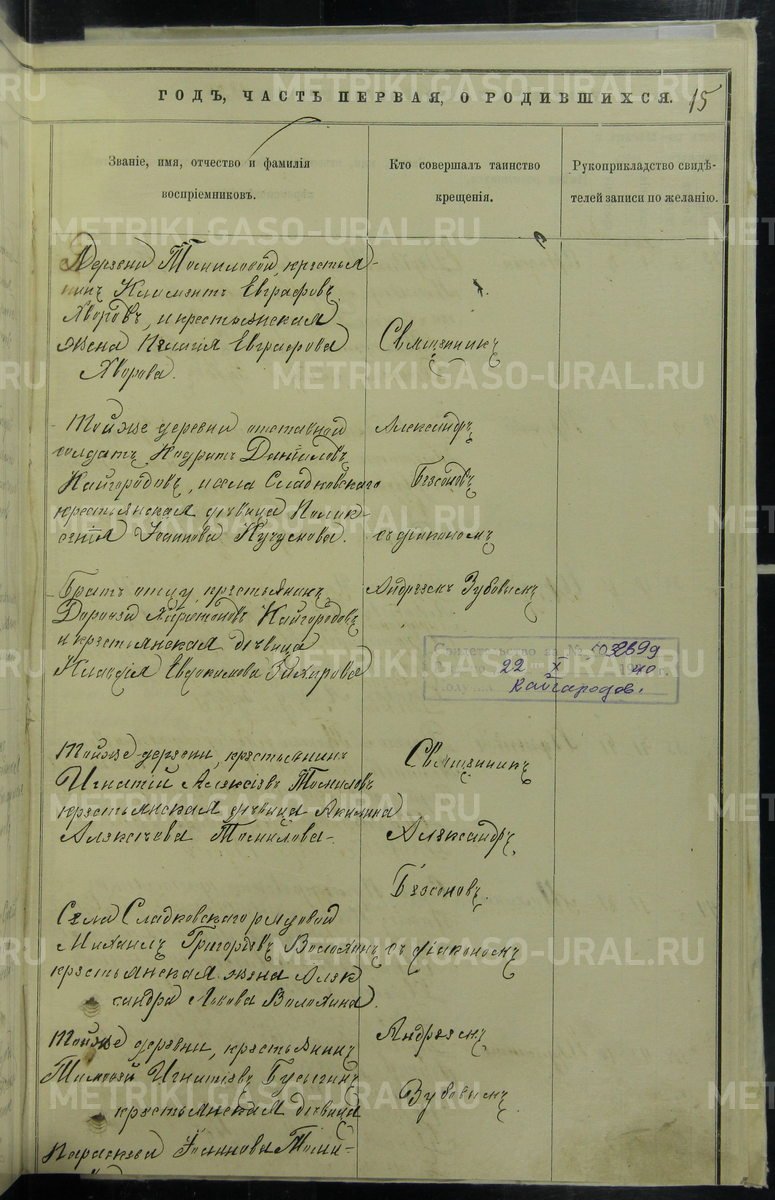 ГОДЪ, ЧАСТЬ ПЕРВАЯ, О РОДИВШИХСЯ.
15
Званіе, имя, отчество и фамилія
воспріемниковъ.
Кто совершалъ таинство
крещенія.
Рукоприкладство свидѣ-
телей записи по желанію.
Деревни Томиловой, крестья-
нинъ Климентъ Евграфовъ
Хворовъ, и крестьянская
жена Пелагія Евграфова
Хворова.
Священникъ
Тойже деревни отставной
солдатъ Кодратъ Даниловъ
Кайгородовъ, и села Сладковскаго
крестьянская дѣвица Полик-
сенія Іоаннова Кучумова.
Александръ
Безсоновъ
съ діакономъ
Братъ отцу, крестьянинъ
Дорофей Харитоновъ Кайгородовъ
и крестьянская дѣвица
Клавдія Евдокимова
Андреемъ Зубовымъ
Свидетельство за №
22 X 1940 г.
Кайгародов.
Тойже деревни, крестьянинъ
Игнатій Алексѣевъ Томиловъ
крестьянская дѣвица Акилина
Алексѣева Томилова
Священникъ
Александръ
Безсоновъ
Села Сладковскаго рядовой
Михаилъ Григорьевъ Волохинъ
крестьянская жена Алек
сандра Львова Волохина.
съ діакономъ
Тойже деревни, крестьянинъ
Тимофей Игнатіевъ Бусыгинъ
крестьянская дѣвица
Параскева Іоаннова Томи-
Андреемъ
Зубовымъ
METRIKI.GASO-URAL.RU